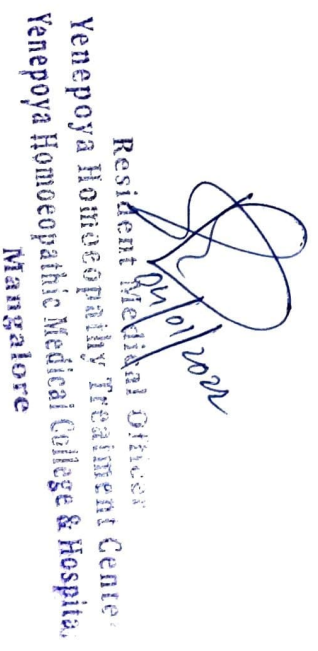 04/01/2022
Resident Medical Officer
Yenepoya Homoeopathy Treatment Center
Yenepoya Homoeopathic Medical College & Hospital
Mangalore